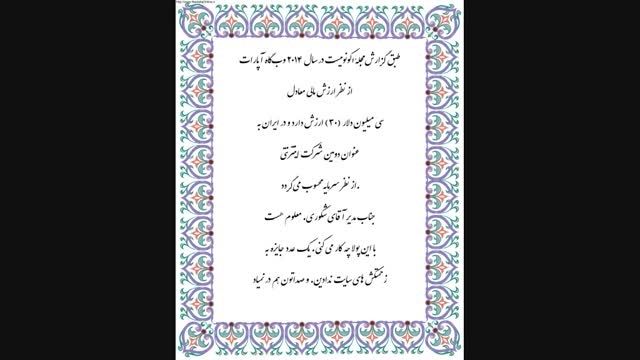 طبق گزارش مجله اکونومیست در سال ۲۰۱۴ وب گاه آپارات
از نظر ارزش مالی معادل
سی میلیون دلار (۳۰) ارزش دارد و در ایران به
عنوان دومین شرکت اینترنتی
از نظر سرمایه محسوب می گردد.
جناب مدیر آقای شکوری. معلوم هست
با این پولا چه کار می کنی. یک عدد جایزه به
زحمتکش های سایت ندادین. و صداتون هم در نمیاد